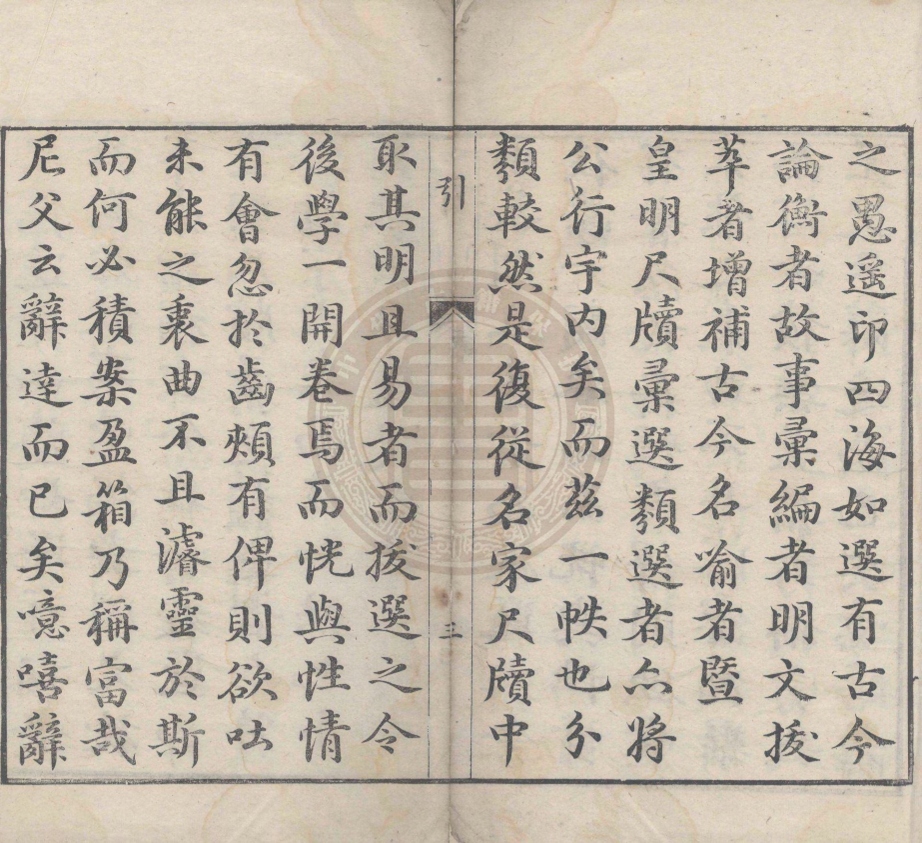 之愚遥印四海如選有古今
論衡者故事彙編者明文拔
萃者增補古今名喻者暨
皇明尺牘彙選類選者亦將
公行宇內矣而茲一帙也分
類較然是復從名家尺牘中
引
三
取其明且易者而拔選之令
後學一開卷焉而恍與性情
有會忽於齒頰有俾則欲吐
未能之衷曲不且濬靈於斯
而何必積案盈箱乃稱富哉
尼父云辭達而已矣噫嘻辭